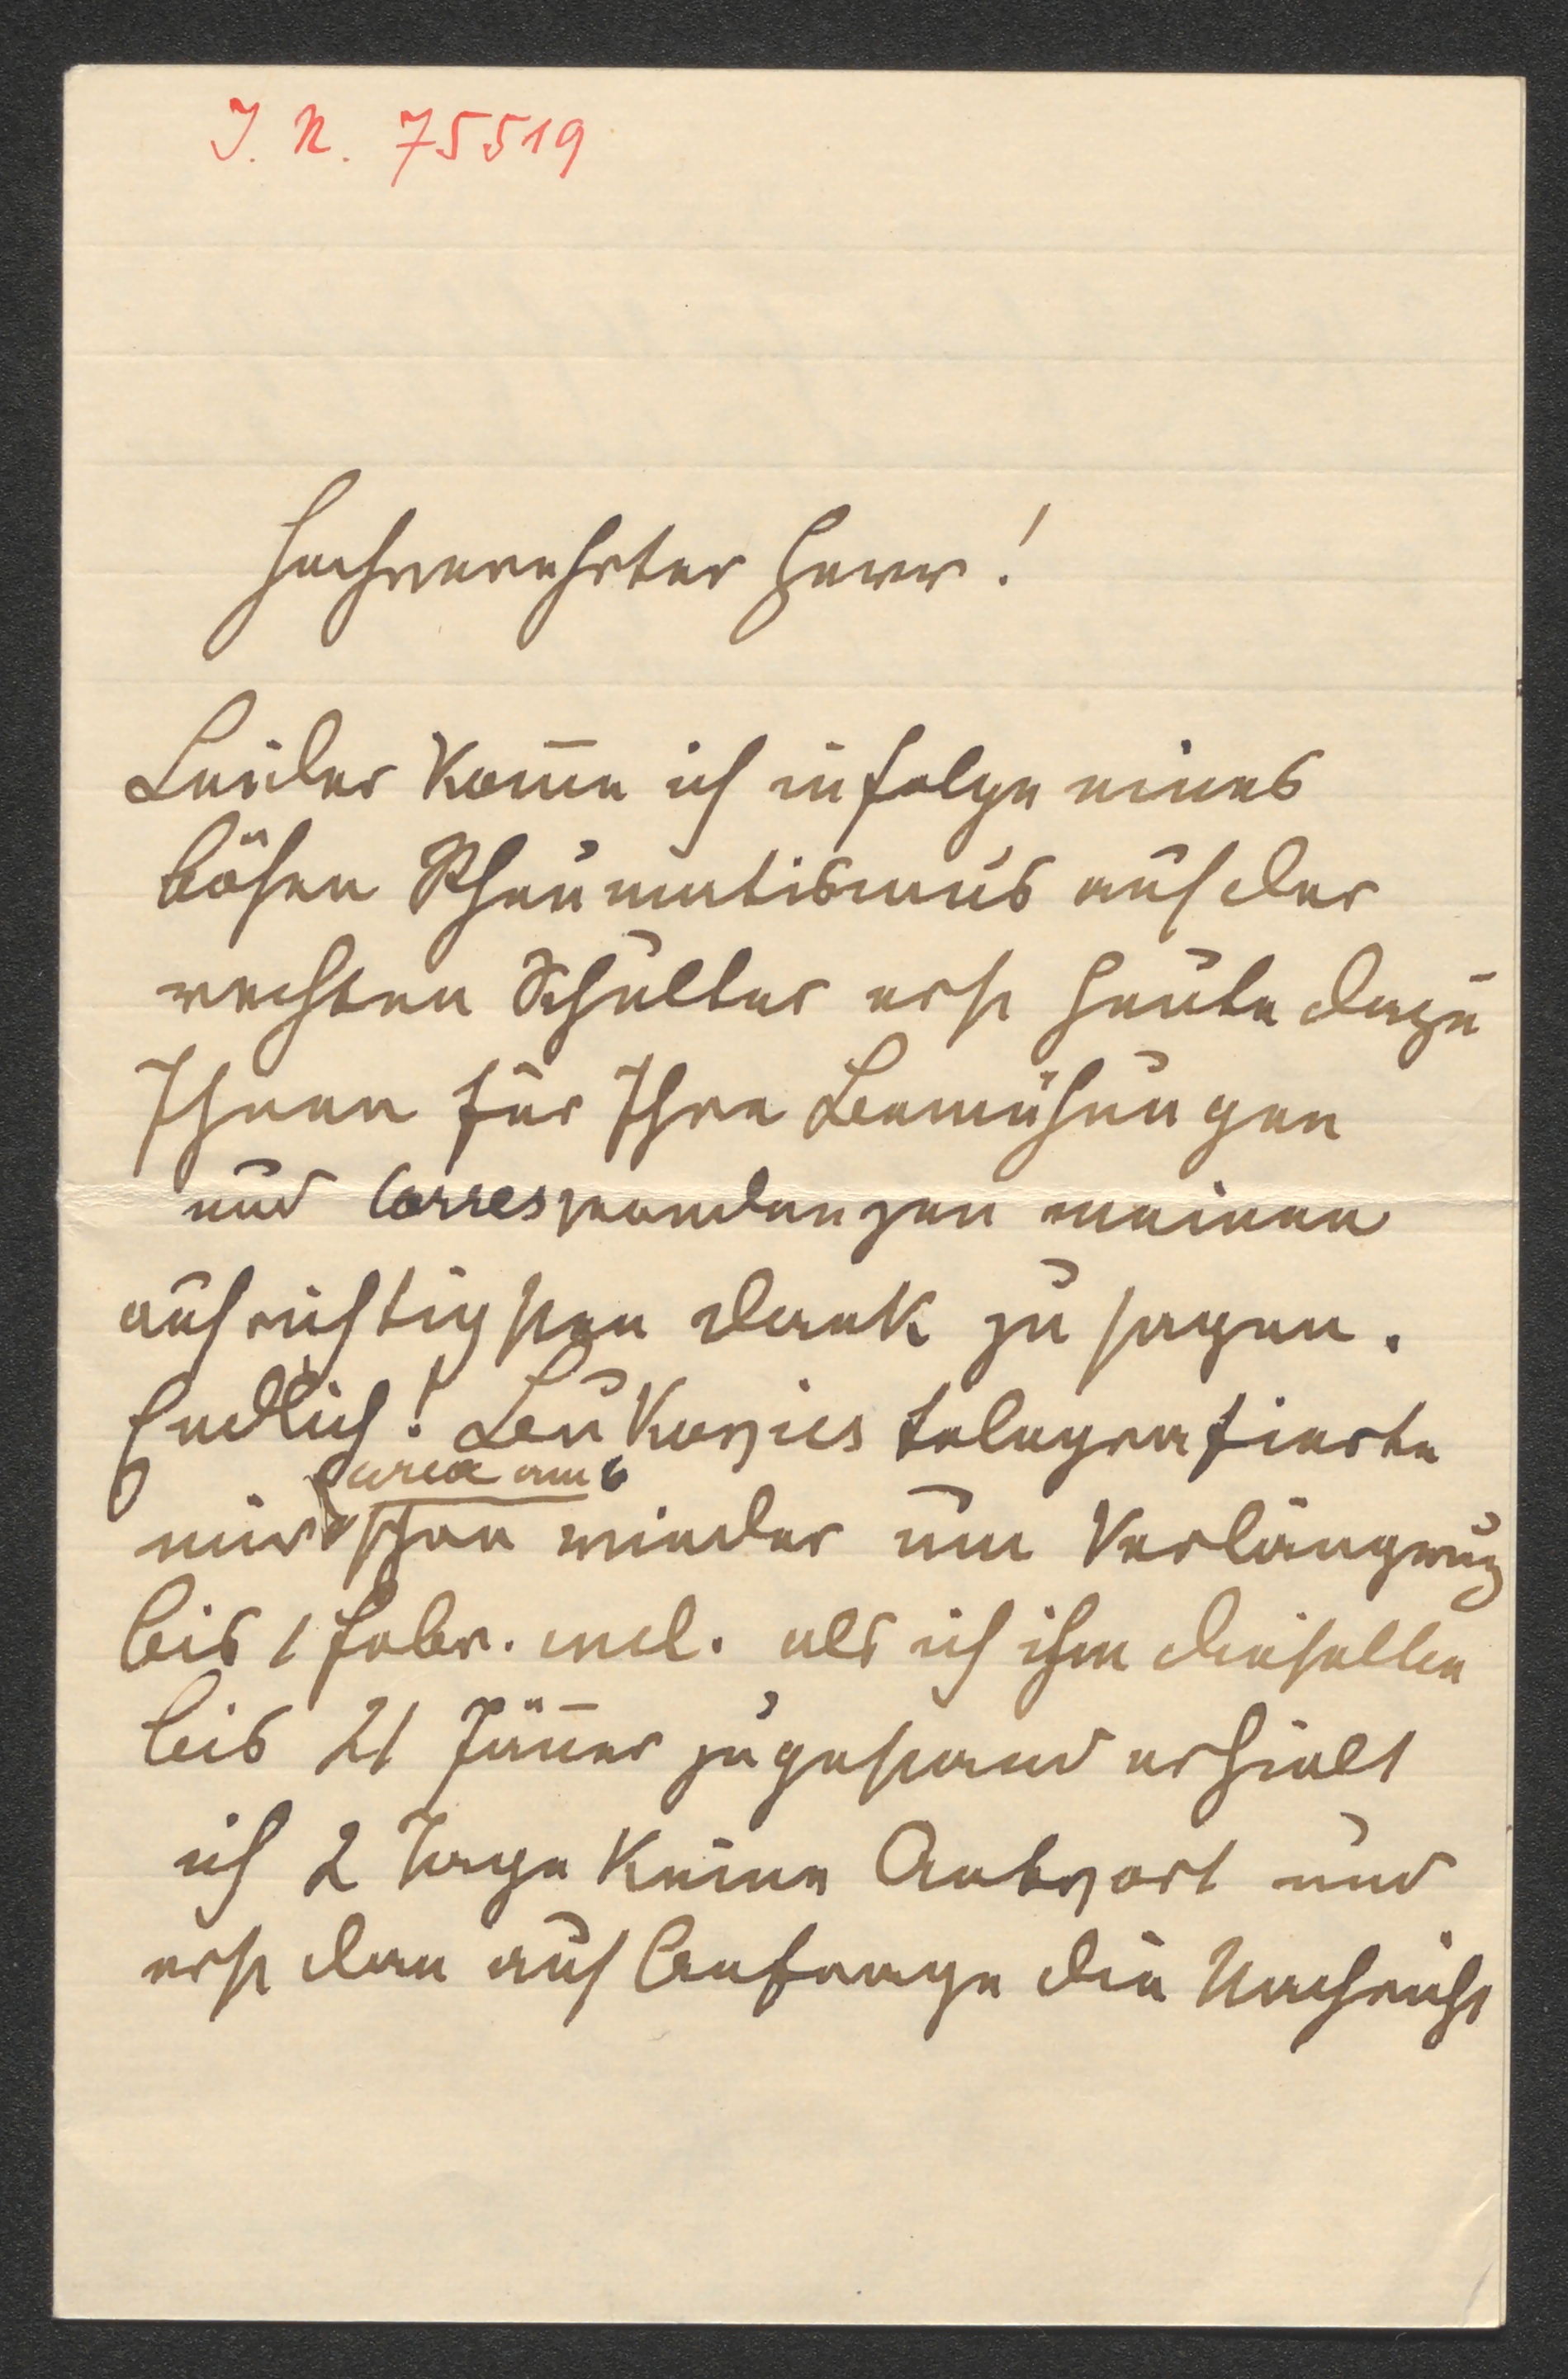 J. N. 75519
Hochverehrter Herr!
Leider kom̄e ich infolge eines
bösen Rheumatismus auf der
rechten Schulter erst heute dazu
Ihnen für Ihre Bemühungen
und Correspondenzen meinen
aufrichtigsten Dank zu sagen.
Endlich! Leukovics telegrafierte
circa am 6
mir schon wieder um Verlängerung
bis 1 Febr. incl. als ich ihm dieselbe
bis 21 Jän̄er zugestand erhielt
ich 2 Tage keine Antwort und
erst dan auf Anfrage die Nachricht